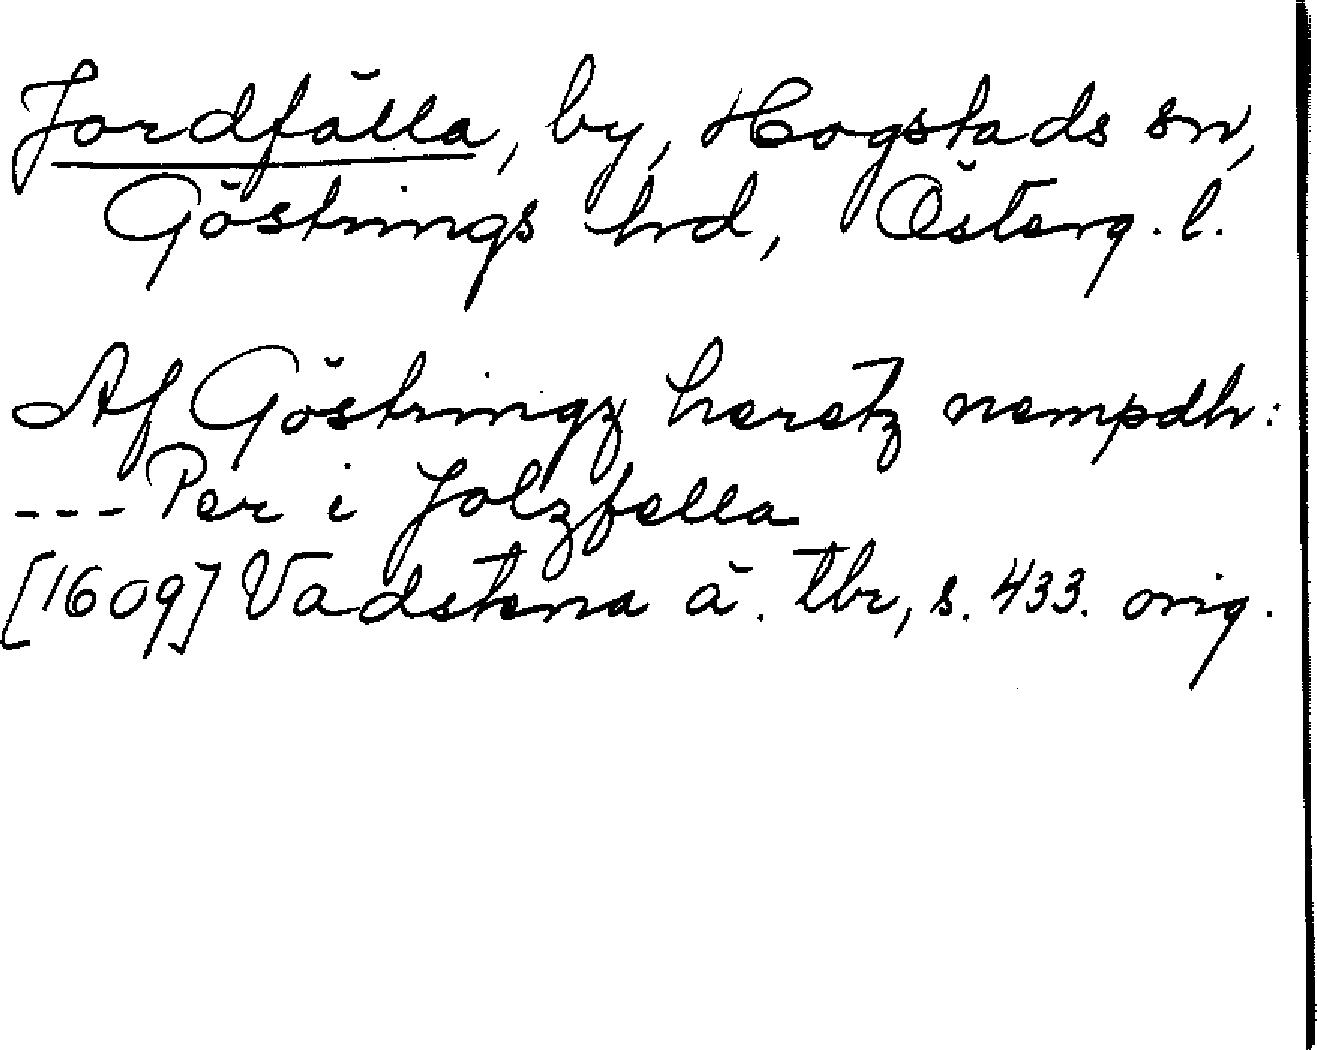 Jordfälla, by, Hogstads sn,
Göstrings hrd, Österg. l.
Af Göstringz heretz nempdh:
--- Per i Jolzfella
[1609] Vadstena ä. tbr, s. 433. orig.